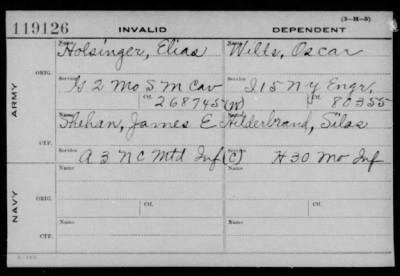 (3-H-5)
119126 INVALID DEPENDENT
Name Holsinger, Elias Name Wills, Oscar
ARMY
ORIG.
Service G 2 Mo S M Cav Service I 15 N Y Engr,
Ctf. 268745 (W) Ctf. 80355
Name Shehan, James E Name Hilderbrand, Silas
CTF.
Service A 3 N C Mtd Inf (C) Service H 30 Mo Inf
NAVY
Name Name
ORIG.
Service Ctf. Service Ctf.
Name Name
CTF.
Service Service